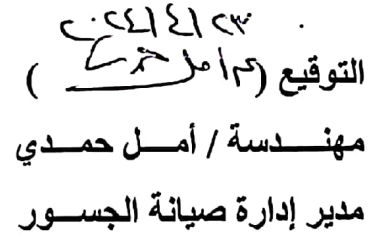 ٢٠٢٤/٤/٢٣
التوقيع (م أمل حمدي)
مهنـــدسة / أمــل حمــدي
مدير إدارة صيانة الجســور